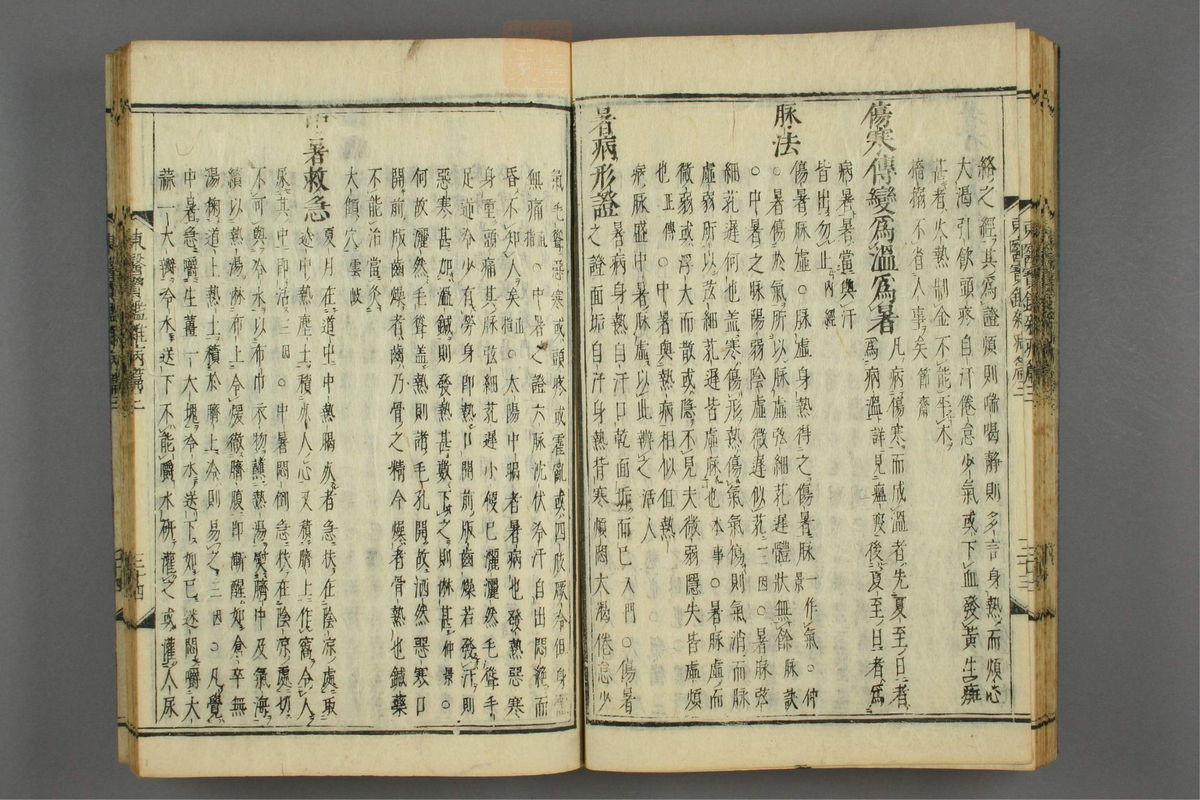 絡之經其爲證煩則喘喝靜則多言身熱而煩心
大渴引飮頭疼自汗倦怠少氣或下血發黃生斑
甚者火熱制金不能平木
搐搦不省人事矣節齋
傷寒傳變爲溫爲暑凡病傷寒而成溫者先夏至日者
爲病溫詳見瘟疫後夏至日者爲
病暑暑當與汗
皆出勿止內經
脉法
傷暑脉虛○脉虛身熱得之傷暑脉影一作氣○仲
○暑傷於氣所以脉虛弦細芤遲體狀無餘脉訣
○中暑之脉陽弱陰虛微遲似芤三因○暑脉弦
細芤遲何也盖寒傷形熱傷氣氣傷則氣消而脉
虛弱所以弦細芤遲皆虛脉也本事○暑脉虛而
微弱或浮大而散或隱不見夫微弱隱失皆虛類
也正傳○中暑與熱病相似但熱
病脉盛中暑脉虛以此辨之活人
暑病形證
暑病身熱自汗口乾面垢而已入門○傷暑
之證面垢自汗身熱背寒煩悶大渴倦怠少
氣毛聳惡寒或頭疼或霍亂或四肢厥冷但身體
無痛直指○中暑之證六脉沈伏冷汗自出悶絶而
昏不知人矣直指○太陽中暍者暑病也發熱惡寒
身重頭痛其脉弦細芤遲小便已灑灑然毛聳手
足逆冷少有勞身卽熱口開前版齒燥若發汗則
惡寒甚加溫鍼則發熱甚數下之則淋甚仲景○
何故灑然毛聳盖熱則諸毛孔開故洒然惡寒口
開前版齒燥者齒乃骨之精今燥者骨熱也鍼藥
不能治當灸
大顀穴雲岐
中暑救急
夏月在道中中熱暍死者急扶在陰凉處取
途中熱塵土積死人心又積臍上作窩令人
尿其中卽活三因○中暑悶倒急扶在陰凉處切
不可與冷水以布巾衣物蘸熱湯熨臍中及氣海
續以熱湯淋布上令煖徹臍腹卽漸醒如倉卒無
湯掬道上熱土積於臍上冷則易之三因○凡覺
中暑急嚼生薑一大塊冷水送下如已迷悶嚼大
蒜一大瓣冷水送下不能嚼水硏灌之或灌人尿
東醫寶鑑雜病篇三 三十三
東醫寶鑑雜病篇三 三十四